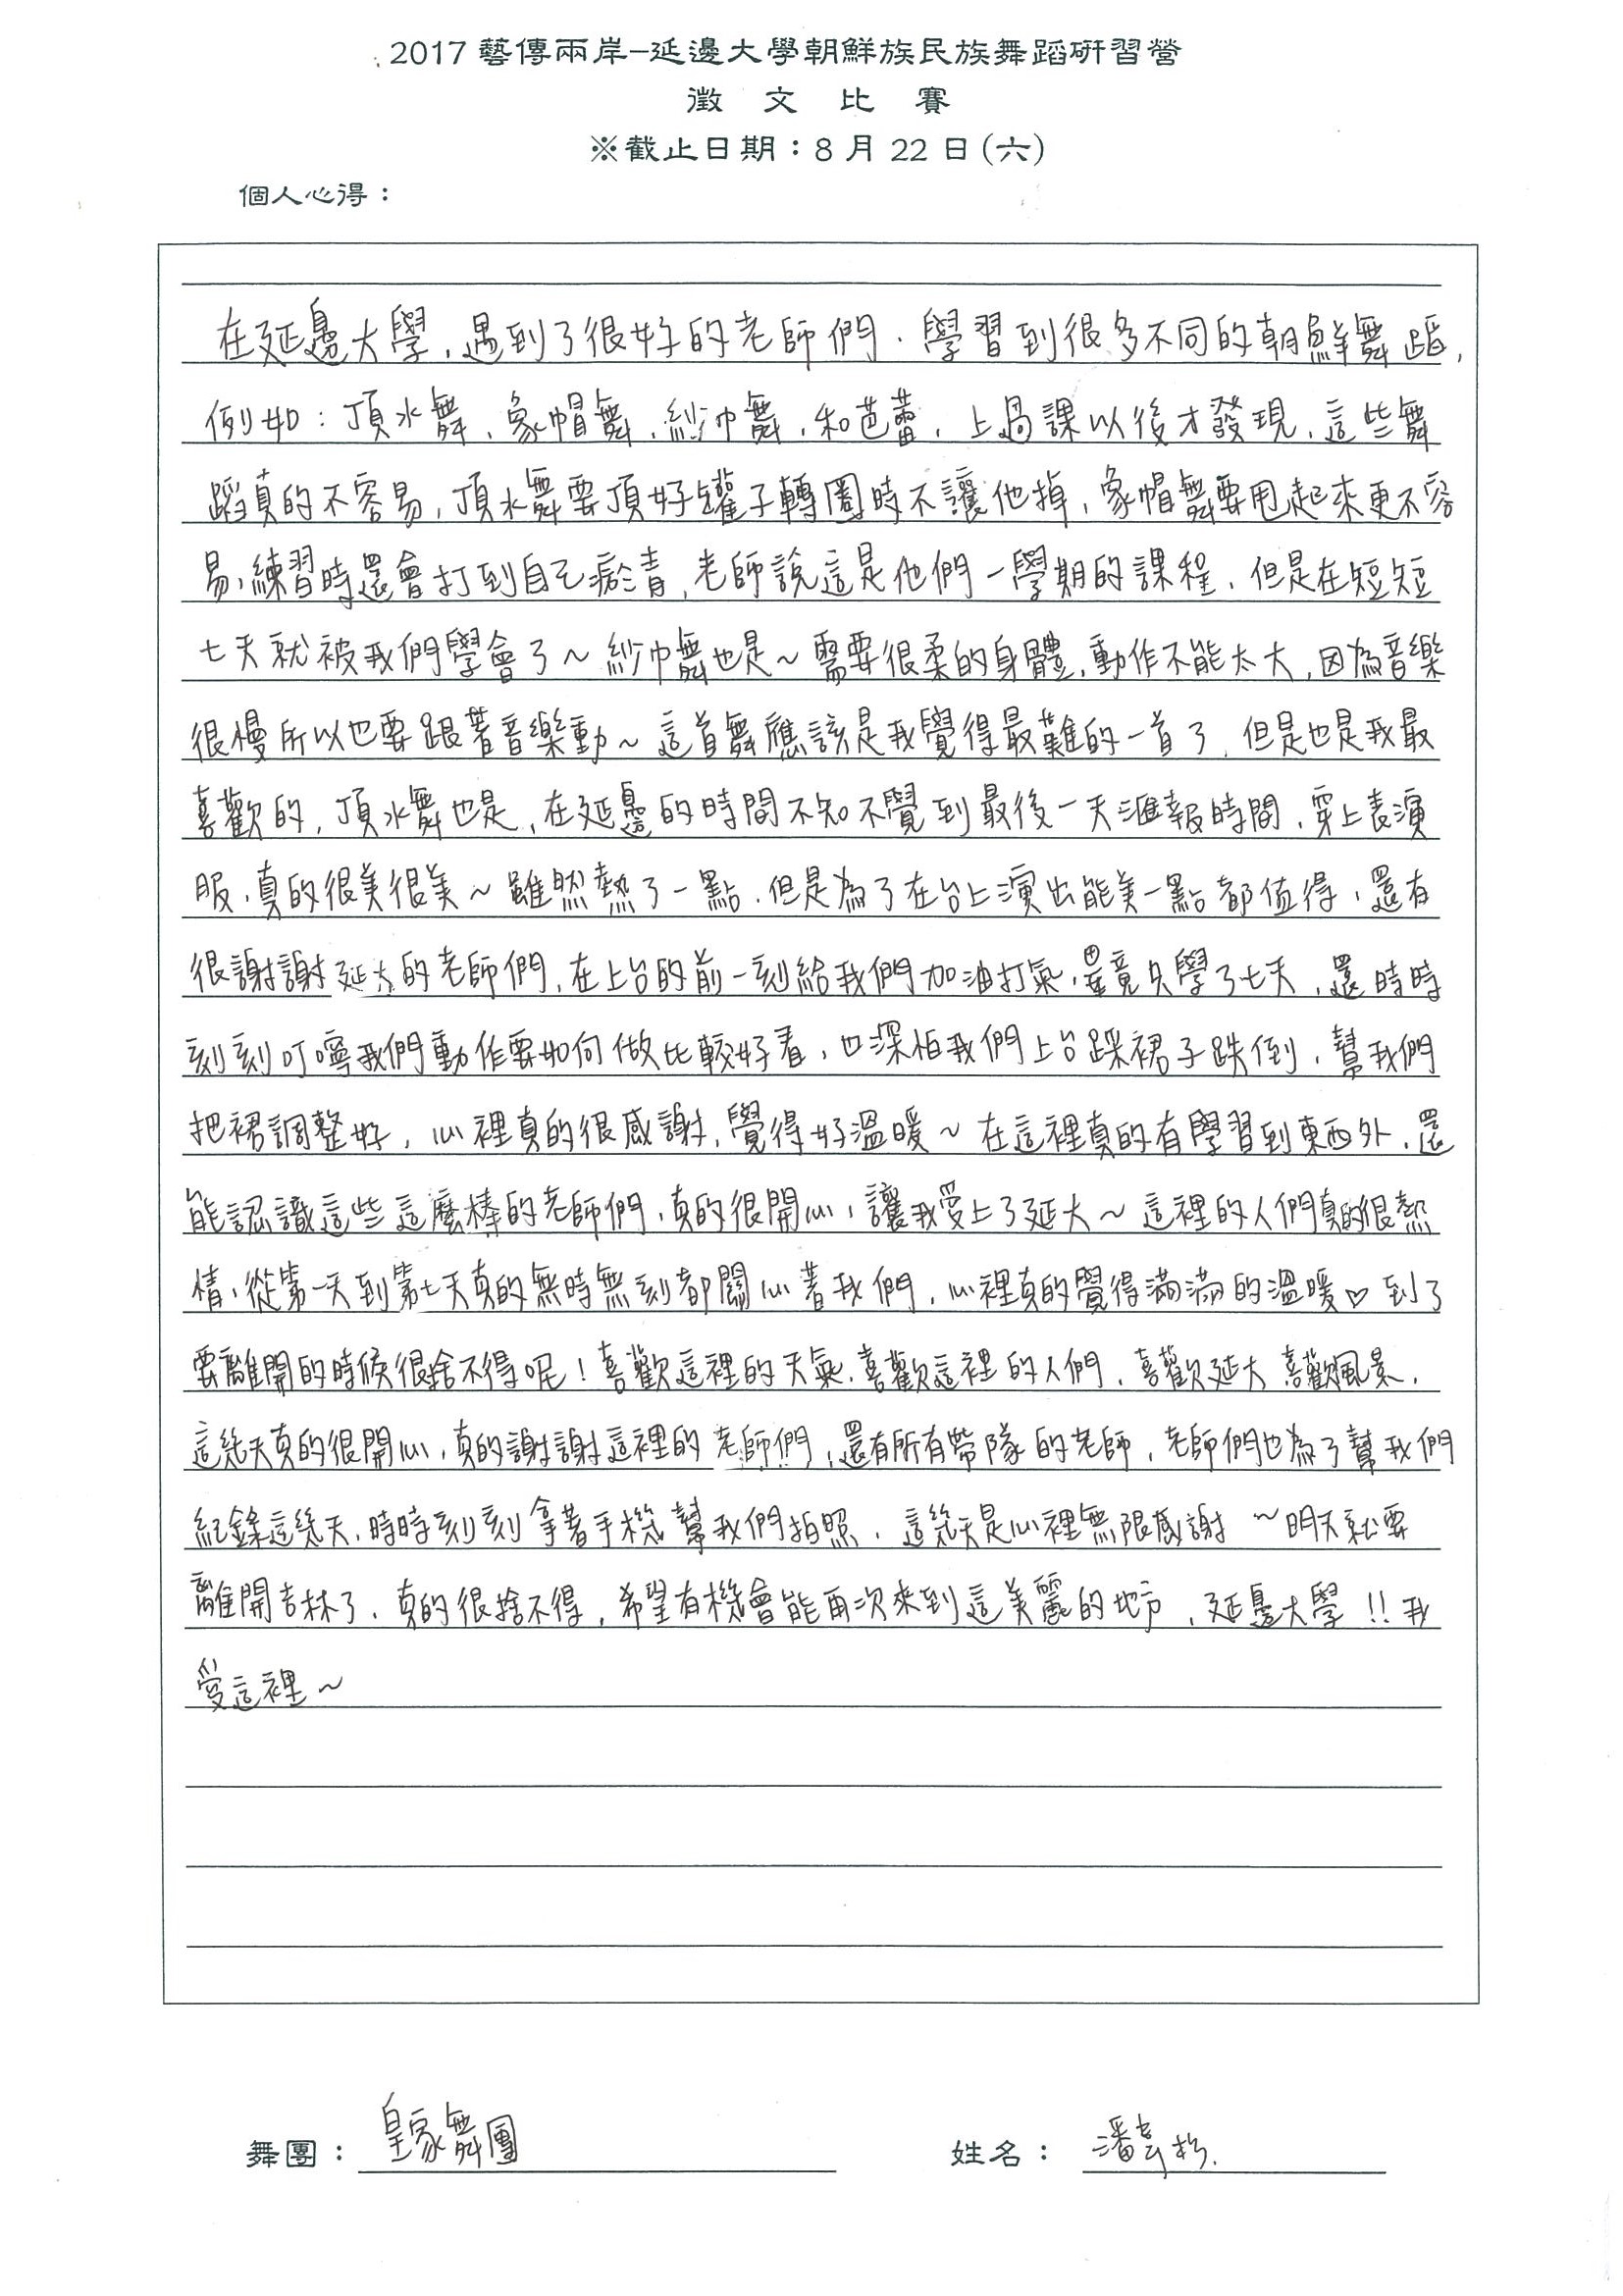 2017藝傳兩岸–延邊大學朝鮮族民族舞蹈研習營
徵文比賽
※截止日期：8月22日(六)
個人心得：
在延邊大學，遇到了很好的老師們．學習到很多不同的朝鮮舞蹈，
例如：頂水舞、象帽舞、紗巾舞，和芭蕾，上過課以後才發現，這些舞
蹈真的不容易，頂水舞要頂好罐子轉圈時不讓他掉，象帽舞要甩起來更不容
易，練習時還會打到自己瘀青，老師說這是他們一學期的課程，但是在短短
七天就被我們學會了～紗巾舞也是～需要很柔的身體，動作不能太大，因為音樂
很慢所以也要跟著音樂動～這首舞應該是我覺得最難的一首了，但是也是我最
喜歡的，頂水舞也是，在延邊的時間不知不覺到最後一天滙報時間，穿上表演
服，真的很美很美～雖然熱了一點，但是為了在台上演出能美一點都值得，還有
很謝謝延大的老師們，在上台的前一刻給我們加油打氣，畢竟只學了七天，還時時
刻刻叮嚀我們動作要如何做比較好看，也深怕我們上台踩裙子跌倒，幫我們
把裙調整好，心裡真的很感謝，覺得好溫暖～在這裡真的有學習到東西外，還
能認識這些這麼棒的老師們，真的很開心，讓我愛上了延大～這裡的人們真的很熱
情，從第一天到第七天真的無時無刻都關心著我們，心裡真的覺得滿滿的溫暖♡到了
要離開的時候很捨不得呢！喜歡這裡的天氣，喜歡這裡的人們，喜歡延大喜歡風景，
這幾天真的很開心，真的謝謝這裡的老師們，還有所有帶隊的老師，老師們也為了幫我們
紀錄這幾天，時時刻刻拿著手機幫我們拍照，這幾天是心裡無限感謝～明天就要
離開吉林了，真的很捨不得，希望有機會能再次來到這美麗的地方，延邊大學!!我
愛這裡～
舞團：皇家舞團
姓名：潘